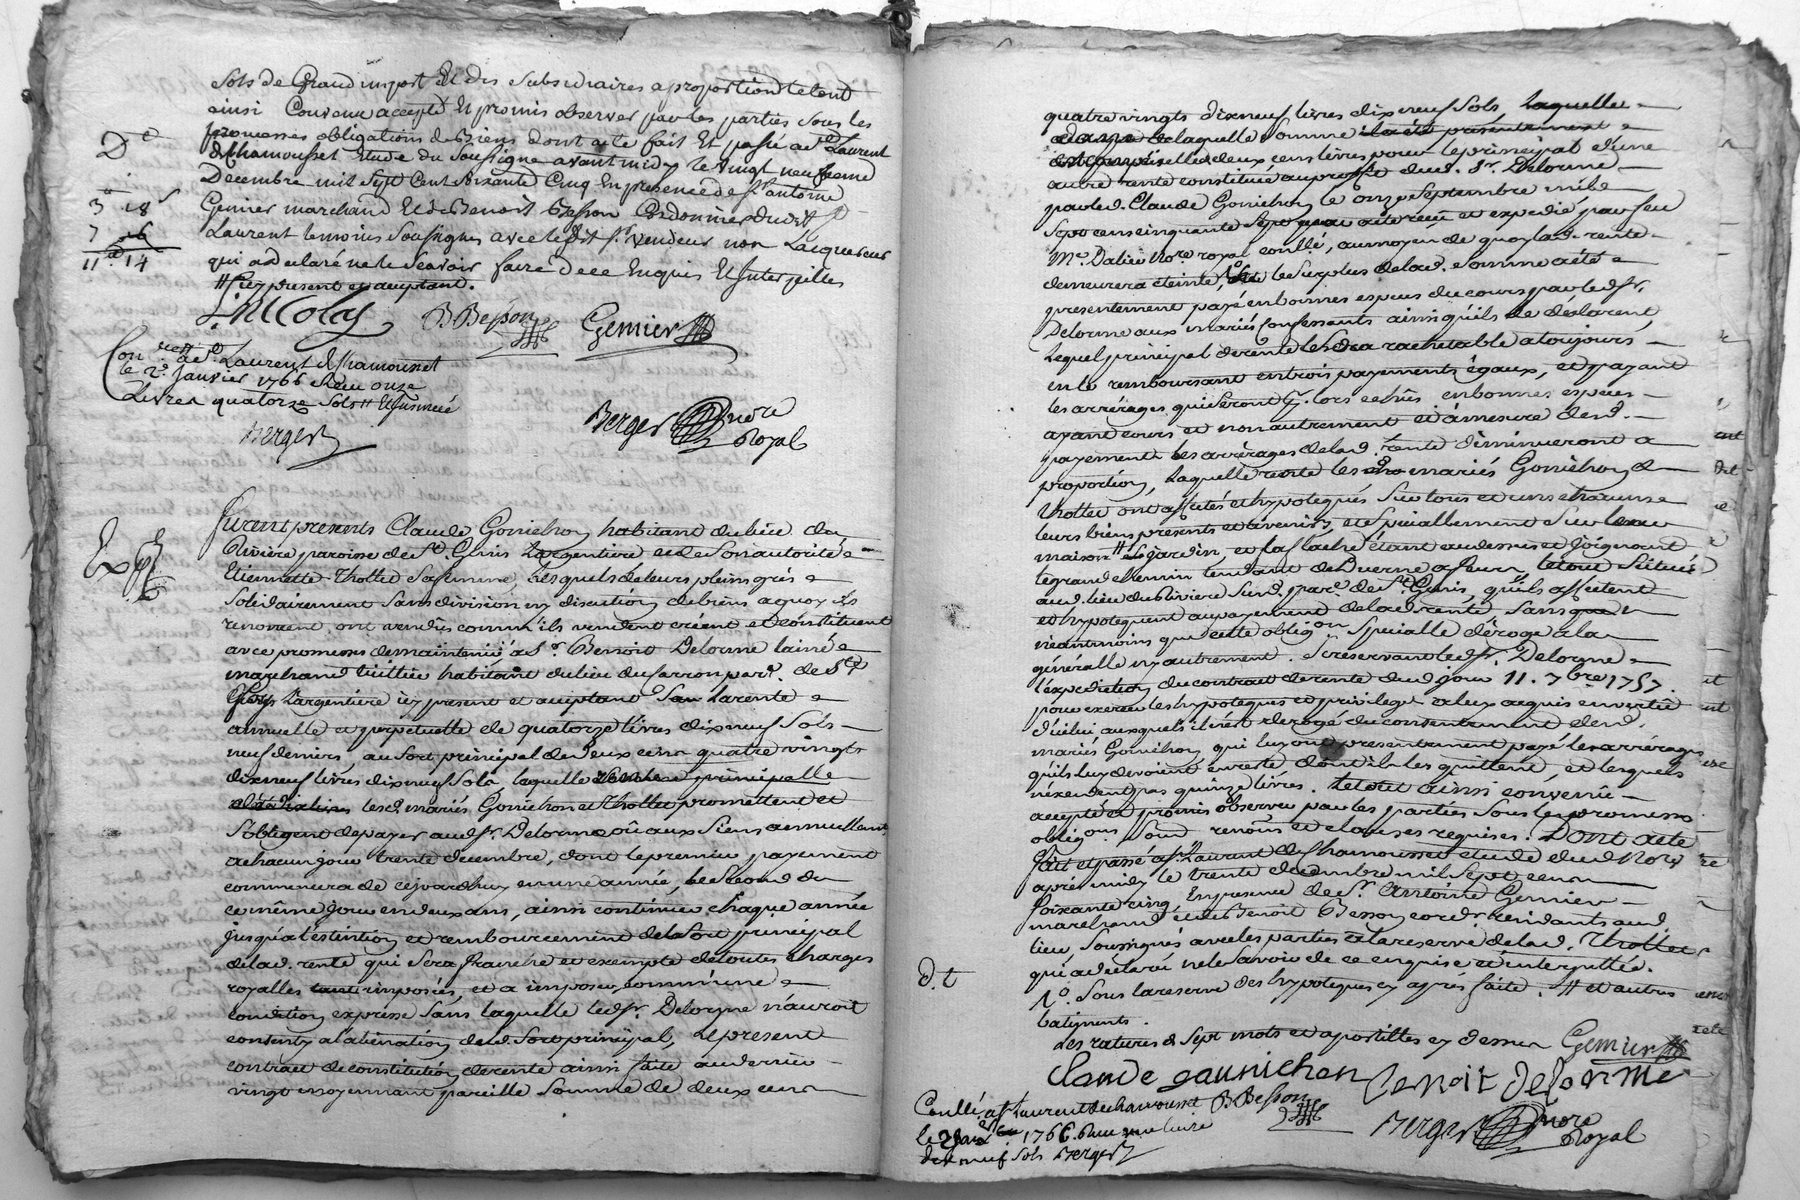 sols de Grand import Et des subsidiaires a proportion le tout
ainsi Convenu accepté Et promis observer par les parties sous les
promesses obligations de Biens dont acte fait Et passé a St Laurent
de Chamousset Etude du soussigné avant midy le vingt neufieme
Decembre mil sept Cent soixante Cinq En presence de sr antoine
Gemier marchand Et de Benoit Besson Cordonnier dudit St
Laurent temoins soussignes avec ledit sr vendeur non L'acquereur
qui a declaré ne le sçavoir faire de ce Enquis Et Interpellés
# icy present et acceptant.
3 18s
7 16
11 14
B Besson Gemier
Con a St Laurent de Chamousset
le 2e Janvier 1766 Reçu onze
Livres quatorze sols
Berger
Berger nore
Royal
Exp
Furent presents Claude Gonichon habitant du lieu du
Riviere paroisse de St Genis Largentiere et de son autorité
Etiennette Thollet sa femme, Lesquels de leurs pleins grés
solidairement sans division ny discution de biens a quoy ils
renoncent, ont vendus comme ils vendent créent et constituent
avec promesse de maintenir à Sr Benoit Delorme lainé
marchand habitant du lieu du Jarron parr. de St
Genys Largentiere icy present et acceptant La rente
annuelle et perpetuelle de quatorze livres dix neuf sols
neuf deniers, au sort principal de deux cens quatre vingts
dixneuf livres dix neuf sols, laquelle rente principalle
les d. mariés Gonichon et Thollet promettent et
s'obligent de payer aud. sr. Delorme où aux siens annuellement
a chacun jour trente decembre, dont le premier payement
commencera de cejourdhuy en une année, le second du
ce même jour en deux ans, ainsi continuer chaque année
jusqu'a l'éxtinction et rembourcement de la sort principal
de lad. rente qui sera franche et exempte de toutes charges
royalles imposées, et a imposer, comme une
condition expresse sans laquelle led. sr. Delorme n'auroit
consenty a l'alienation dud. sort principal, Le present
contrat de constitution de rente ainsi faite au denier
vingt et moyennant pareille somme de deux cens
quatre vingts dixneuf livres dix neuf sols, Laquelle
de laquelle somme
est comprise celle de deux cens livres pour le principal d'une
autre rente constituée au proffit dud. Sr. Delorme
par led. Claude Gonichon le onze septembre mille
sept cens cinquante sept par acte reçu et expedié par feu
Me. Dalier Nore royal conllé, au moyen de quoy lad. rente
demeurera éteinte, 1o. et le surplus de lad. somme a été
presentement payé en bonnes especes du cours par led. sr.
Delorme aux mariés confessants ainsi qu'ils le déclarent,
Lequel principal de rente sera rachetable a toujours
en le remboursant en trois payements égaux, et payant
les arrérages qui seront lors echûs en bonnes especes
ayant cours et non autrement et à mesure desd.
payements les arrérages de lad. rente diminueront a
proportion, Laquelle rente les mariés Gonichon et
Thollet ont assités et hypotequés sur tous et uns chacuns
leurs biens presents et avenirs, et speciallement sur leur
maison # jardin, et sa flache étant au dessus et joignant
le grand chemin tendant de Duerne a feurs, le tout situés
aud. lieu du Riviere sus d. par. de St Genis, qu'ils affectent
et hypotequent au payement de lad. rente sans que
néantmoins que cette obligon speciale déroge a la
générale ny autrement. Se reservant led. sr. Delorme
l'expedition du contrat de rente dud. jour 11. 7bre 1757.
pour exercer les hypoteques et privileges a eux acquis en vertu
d'icelui auxquels il n'est derogé du consentement desd.
mariés Gonichon qui luy ont presentement payé les arrérages
qu'ils luy devoient en reste dont il les quittent, et lesquels
n'excedent pas quinze livres. le tout ainsi convenu
accepté et promis observer par les parties sous les promesses
obligons. soum. renons. et clauses requises. Dont acte
fait et passé a St Laurent de Chamousset etude dud. Nore
après midy le trente decembre mil sept cens
soixante cinq, En presence de Sr. Antoine Gemier
marchand et de Benoit Besson cordr. residants aud.
lieu soussignés avec les parties a la reserve de lad. Thollet
qui a declaré ne le savoir de ce enquise et interpellée.
1o. sous la reserve des hypoteques cy après faite. # et autres
batiments.
d.t
Les ratures de sept mots et apostilles cy dessus Gemier
Claude gaunichon Benoit Delorme
Conllé. a St Laurent de chamousset B Besson
le 2 janv. 1766. Reçu une livre
dix neuf sols Berger
Berger nore
Royal